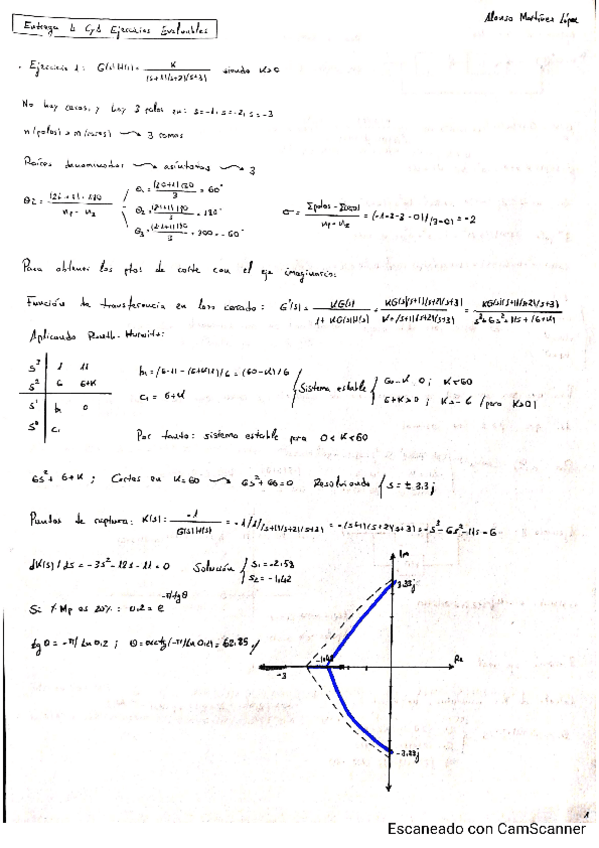 Alonso Martínez López
Entrega 4 CyS Ejercicios Evaluables
. Ejercicio 1: G(s)H(s) = K / (s+1)(s+2)(s+3) siendo K>0
No hay ceros, y hay 3 polos en: s=-1, s=-2, s=-3
n(polos) > n(ceros) ⟿ 3 ramas
Raíces denominador ⟿ asíntotas ⟿ 3
Θi = (2i+1)·180 / np - nz
Θ1 = (2·0+1)180 / 3 = 60°
Θ2 = (2·1+1)180 / 3 = 180°
= 300 = -60°
σ = Σpolos - Σceros / np - nz = (-1-2-3-0)/(3-0) = -2
Para obtener los ptos de corte con el eje imaginario:
Función de transferencia en lazo cerrado: G'(s) = KG(s) / 1+KG(s)H(s) = KG(s)(s+1)(s+2)(s+3) / K+(s+1)(s+2)(s+3) = KG(s)(s+1)(s+2)(s+3) / s³+6s²+11s+(6+K)
Aplicando Routh-Hurwitz:
s³ 1 11
s² 6 6+K
s¹ b1 0
s⁰ c1
b1 = (6·11-(6+K))/6 = (60-K)/6
c1 = 6+K
Sistema estable
60-K>0; K<60
6+K>0; K>-6 (para K>0)
Por tanto: sistema estable para 0<K<60
6s²+6+K; Cortes en K=60 ⟿ 6s²+66=0 Resolviendo s=± 3.3j
Puntos de ruptura: K(s) = -1 / G(s)H(s) = -1/1/(s+1)(s+2)(s+3) = -(s+1)(s+2)(s+3) = -s³-6s²-11s-6
dK(s)/ds = -3s²-12s-11=0 Solución s1=-2.58
s2=-1.42
Si % Mp es 20% : 0.2 = e^-π/tgθ
tgΘ = -π/ln0.2; Θ=arctg(-π/ln0.2)=62.85
Im
3.33j
-1.42
-3
Re
-3.33j
1
Escaneado con CamScanner